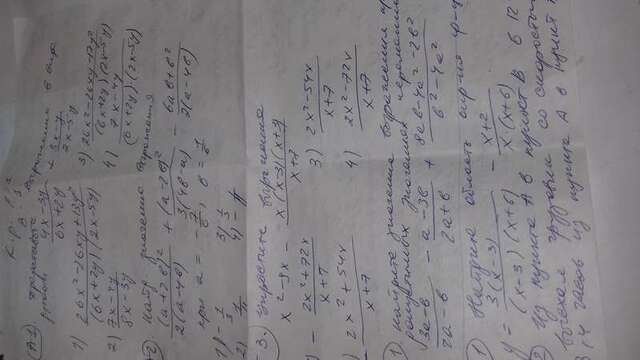 К.р. № 1
В - 3
А1. Представьте выражение в виде
дроби (4x-3y)/(6x+2y) + (3x-y)/(2x-5y)
1) (26x²-26xy+13y²)/((6x+2y)(2x-5y)) 3) (26x²-26xy+17y²)/((6x+2y)(2x-5y))
2) (7x-4y)/(8x-3y) 4) (7x-4y)/((6x+2y)·(2x-5y))
Найти значение выражения
(a+2b)²/(2(a-4b)) + (a-2b)²/(3(4b-a)) - (6ab+b²)/(7(a-4b))
при a = - b =
1) - 1/3 3) 1/3
2) 4) -
3. Упростите выражения
x²-9x - x(x-3)(x+3)/(x+7)
- (2x²+72x)/(x+7) 3) (2x²-54x)/(x+7)
(2x²+54x)/(x+7) 4) (2x²-72x)/(x+7)
1 Найдите значение выражения
допустимых значениях
(3a-b)/(2a-b) - (a-3b)/(2a+b) + (8ab-4a²-2b²)/(b²-4a²)
1 Найдите область опр-ия ф-
y = 3(x-3)/((x-3)(x+6)) - (x+2)/(x·(x+6))
2 Из пункта А в пункт В в 12
выехал грузовик со скоростью
В 14 часов из пункта А в пункт